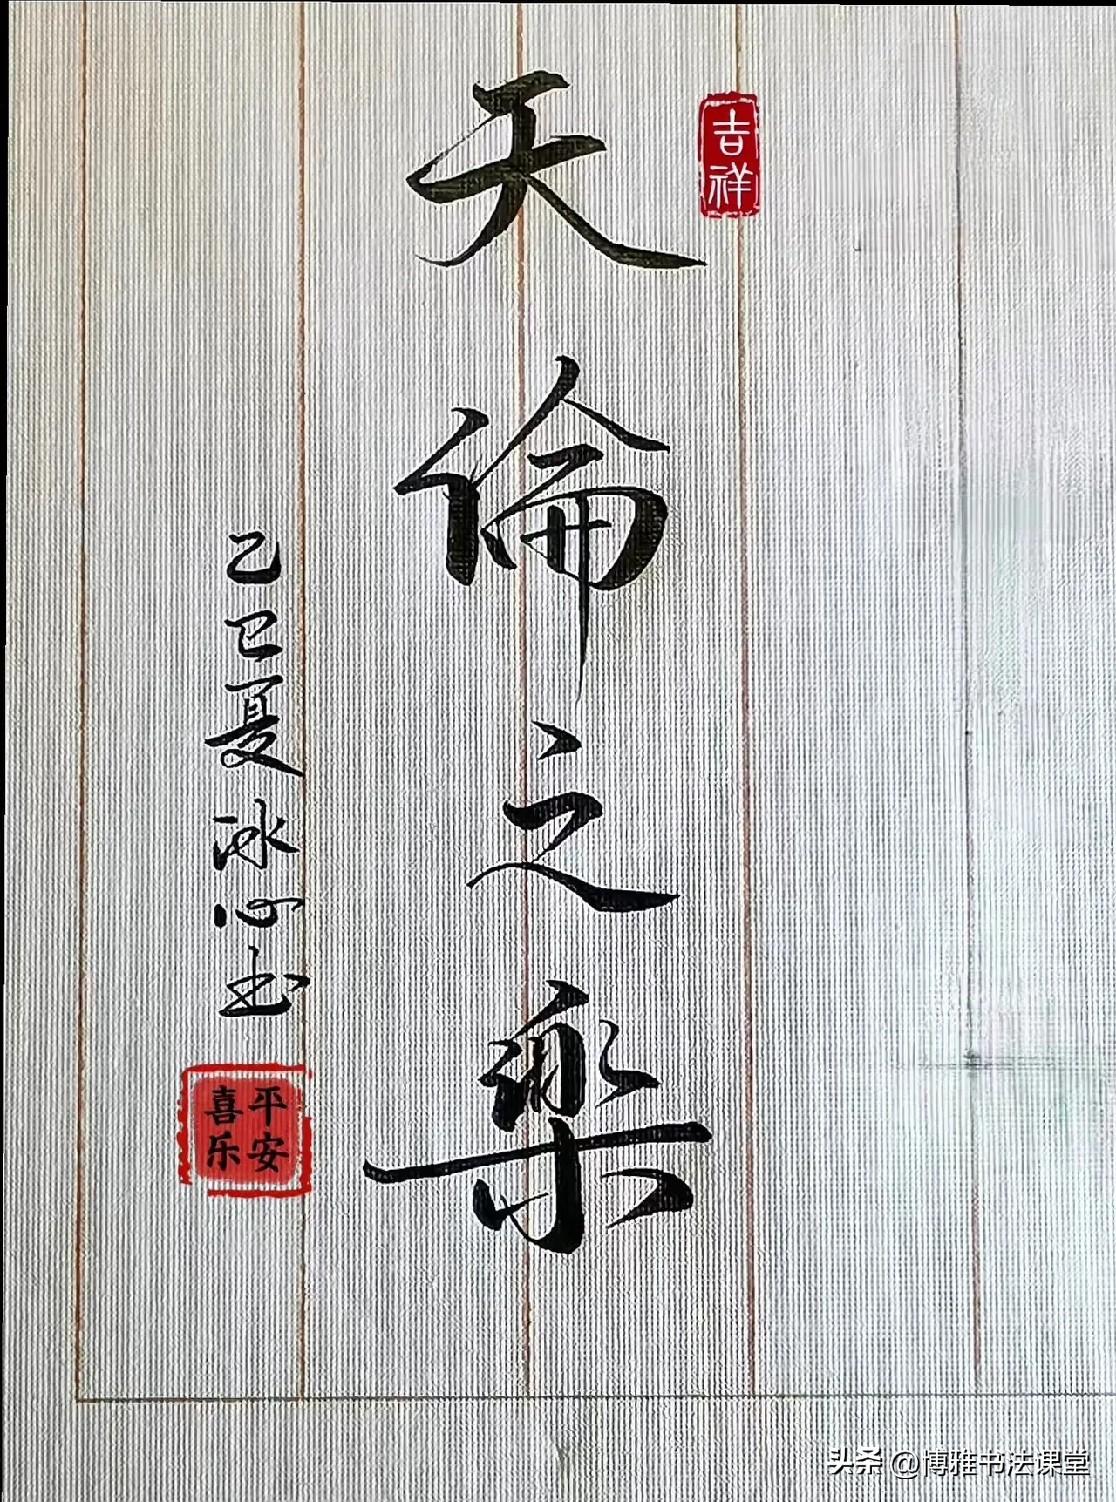 吉祥
天倫之樂
乙巳夏冰心书
平安
喜乐
头条 @博雅书法课堂